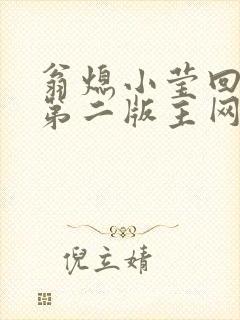 翁熄小莹回
第二版主网
倪立婧